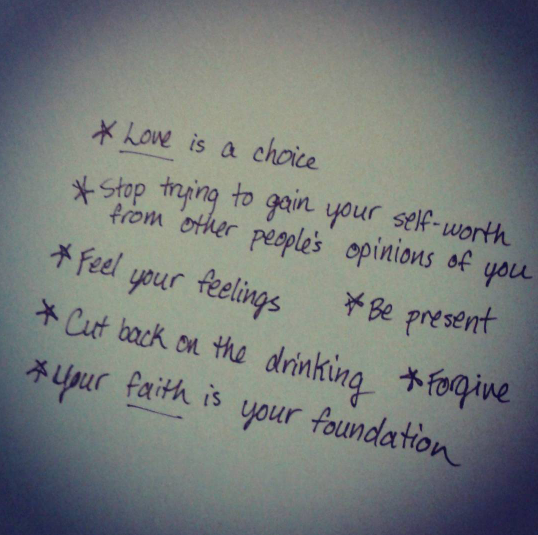 * Love is a choice
* Stop trying to gain your self-worth
from other people's opinions of you
* Feel your feelings
* Be present
* Cut back on the drinking
* Forgive
* Your faith is your foundation